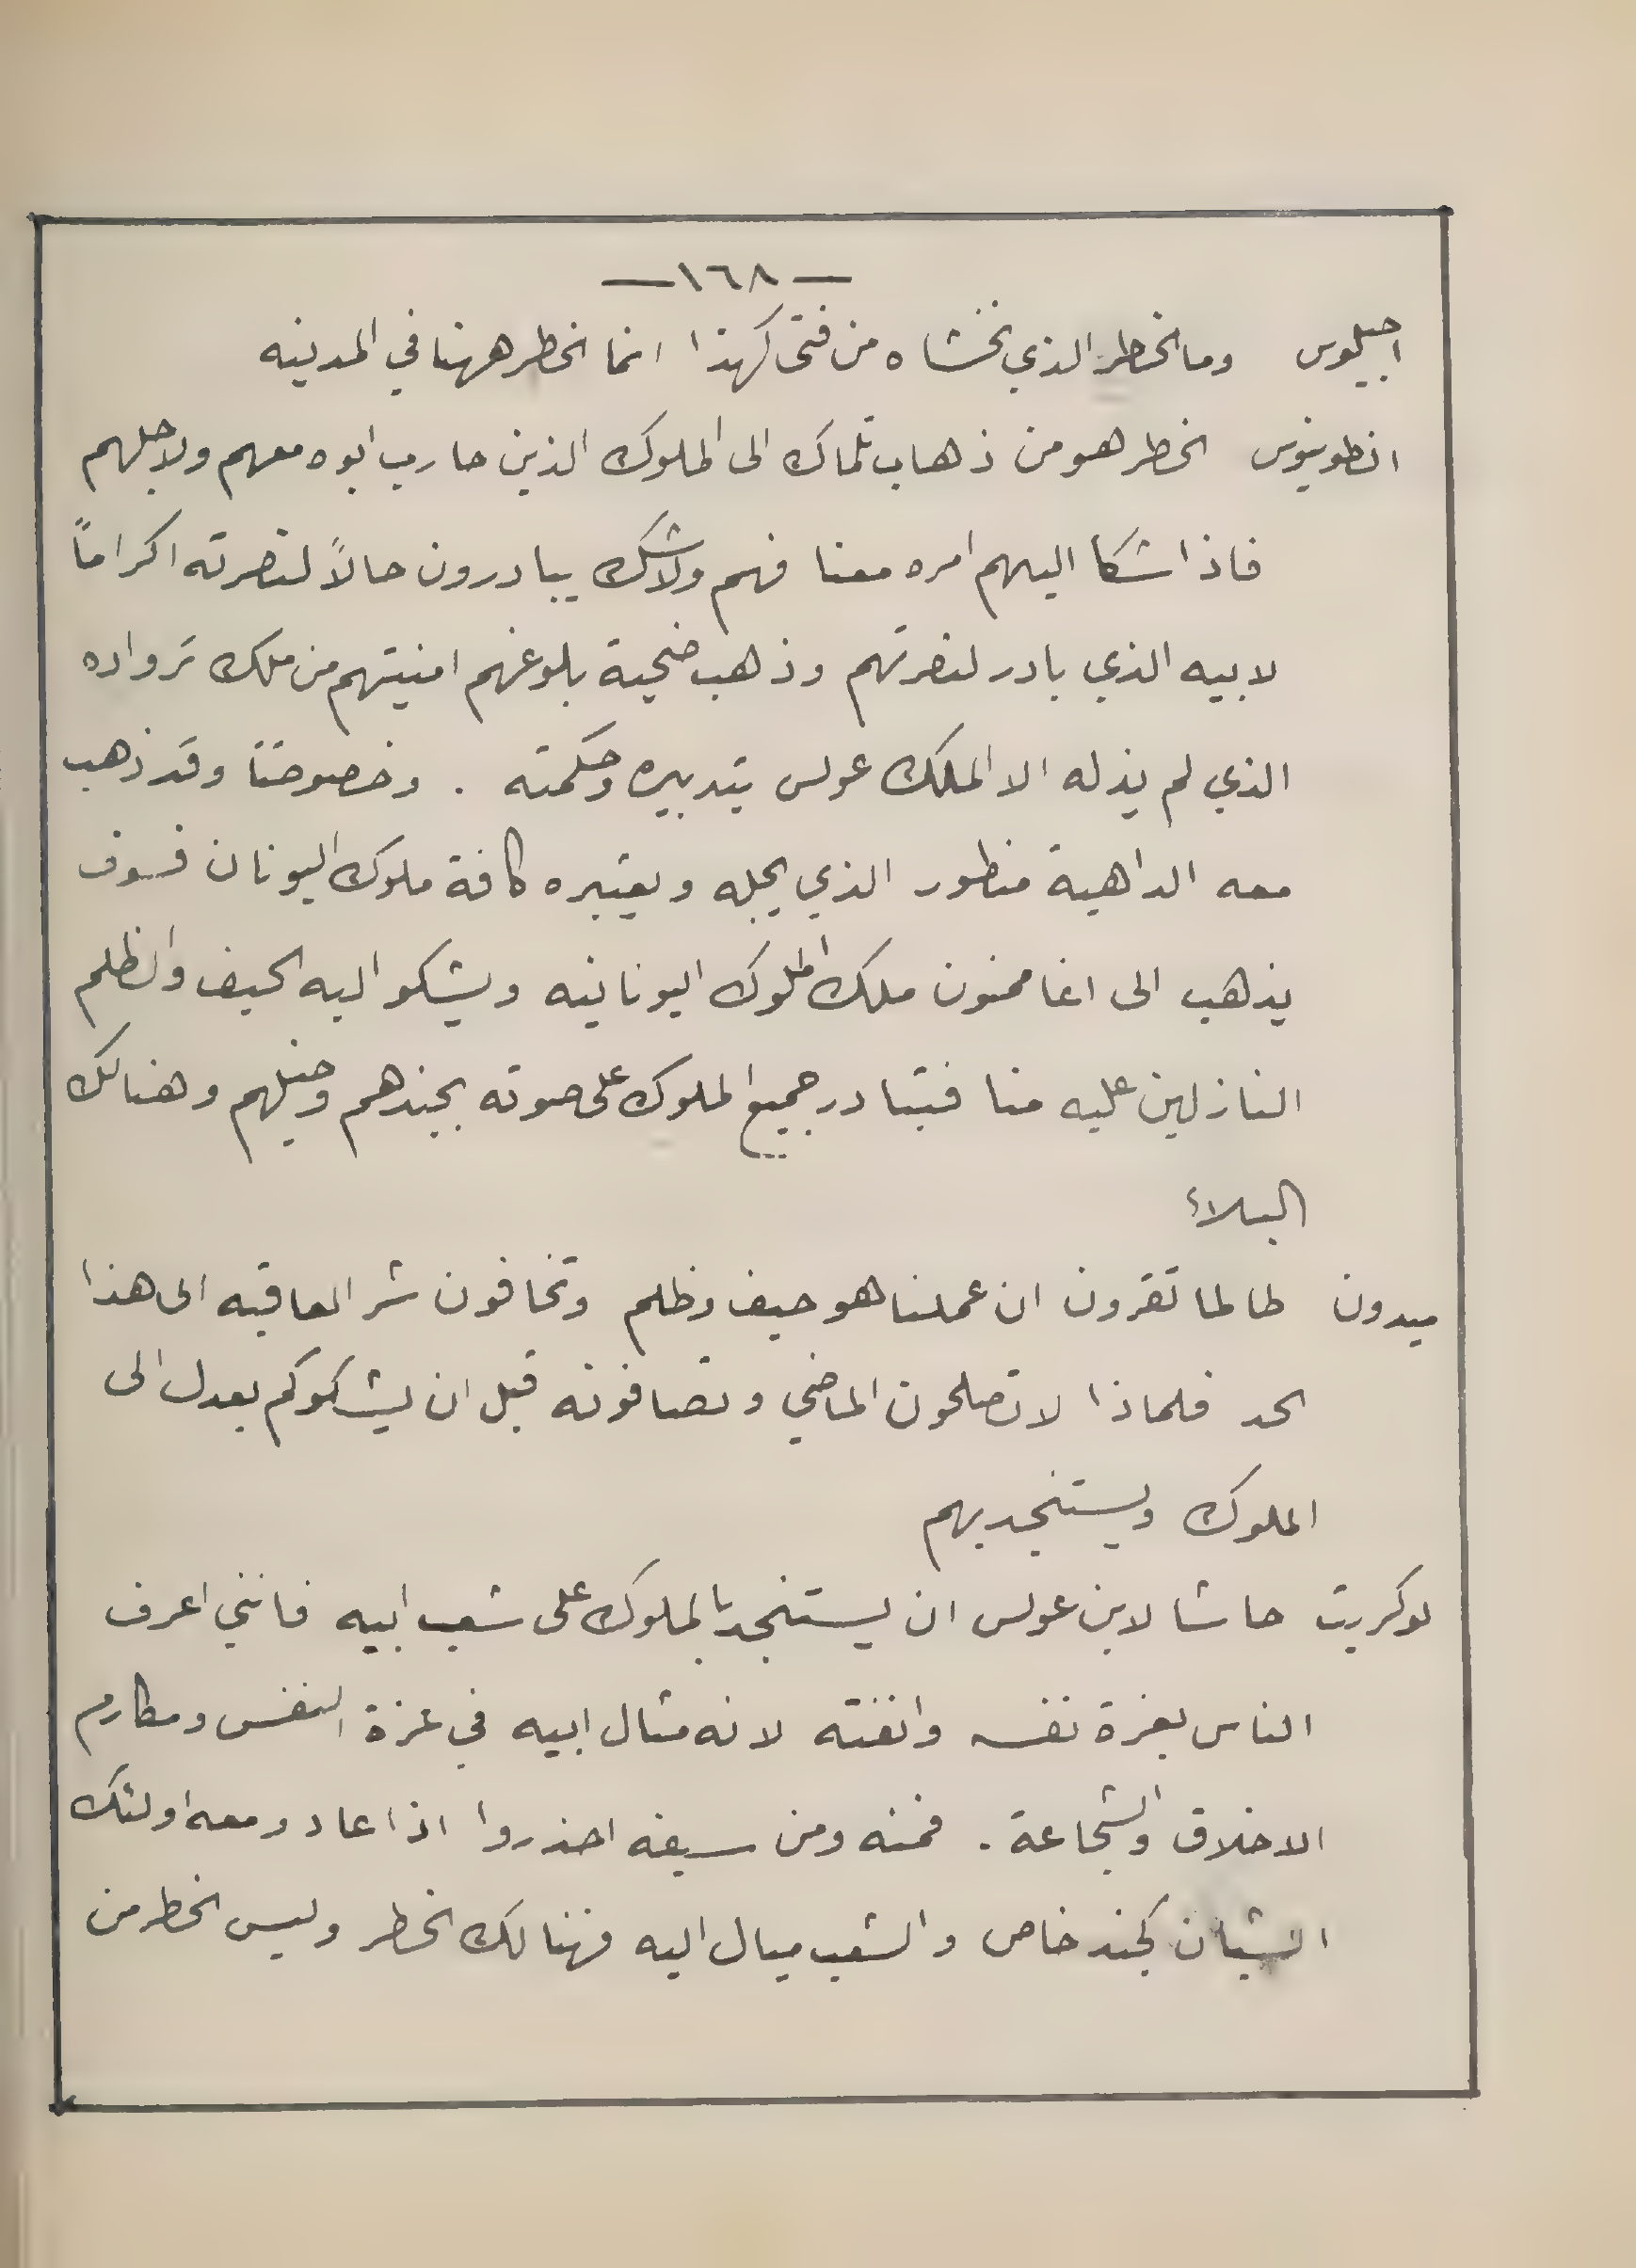 — ١٦٨ —
اجيلوس وما الخطر الذي نخشاه من فتى كهذا انما الخطر ههنا في المدينه
انطونيوس الخطر هو من ذهاب تلماك الى الملوك الذين حارب ابوه معهم ولاجلهم
فاذا شكا اليهم امره معنا فهم ولاشك يبادرون حالاً لنصرته اكراماً
لابيه الذي بادر لنصرتهم وذهب ضحية بلوغهم امنيتهم من ملك ترواده
الذي لم يذله الا الملك عولس بتدبيره وحكمته . وخصوصًا وقد ذهب
معه الداهية منطور الذي يجله ويعتبره كافة ملوك اليونان فسوف
يذهب الى اغاممنون ملك الملوك اليونانيه ويشكو اليه الحيف والظلم
النازلين عليه منا فيتبادر جميع الملوك على صوته بجندهم وخيلهم وهنالك
البلاء
ميدون طالما تقرون ان عملنا هو حيف وظلم وتخافون شر العاقبه الى هذا
الحد فلماذا لا تصلحون الماضي وتصافونه قبل ان يشكوكم بعدل الى
الملوك ويستنجد بهم
لوكريت حاشا لابن عولس ان يستنجد بالملوك على شعب ابيه فانني اعرف
الناس بعزة نفسه وانفته لانه مثال ابيه في عزة النفس ومكارم
الاخلاق والشجاعة . فمنه ومن سيفه احذروا اذا عاد ومعه اولئك
الشبان كجند خاص والشعب ميال اليه فهنالك الخطر وليس الخطر من